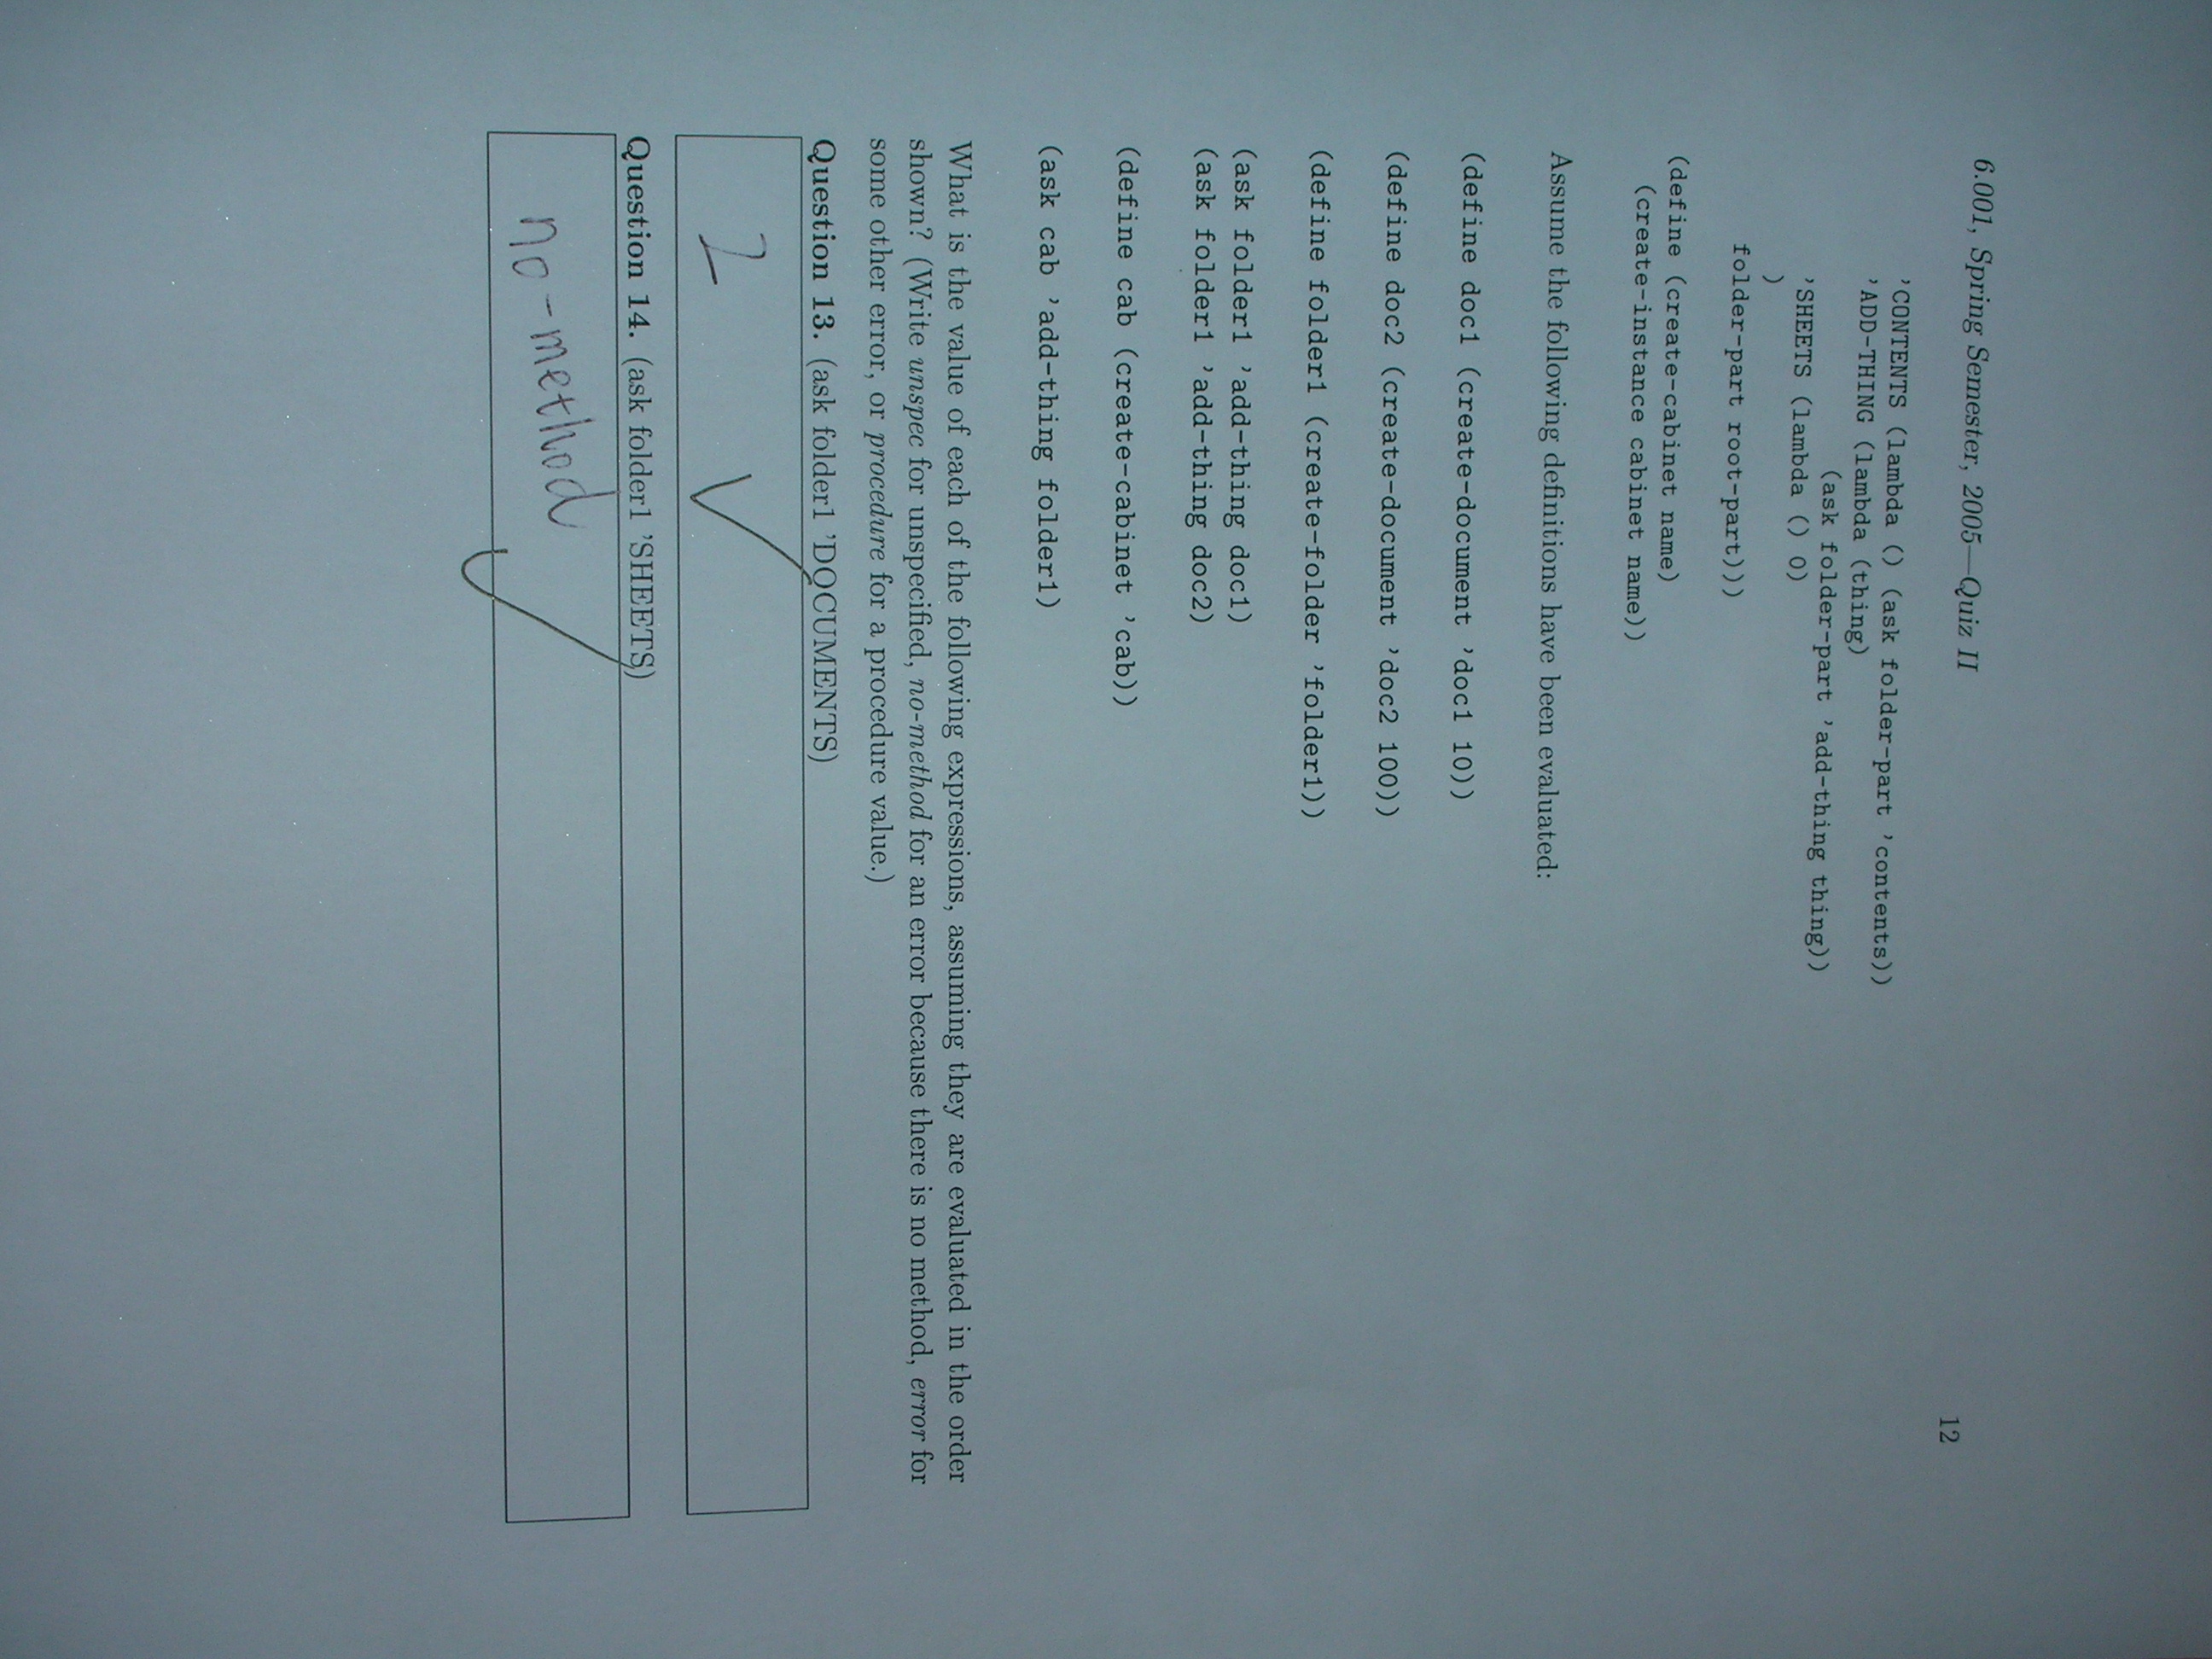 6.001, Spring Semester, 2005—Quiz II 12
'CONTENTS (lambda () (ask folder-part 'contents))
'ADD-THING (lambda (thing)
(ask folder-part 'add-thing thing))
'SHEETS (lambda () 0)
)
folder-part root-part)))
(define (create-cabinet name)
(create-instance cabinet name))
Assume the following definitions have been evaluated:
(define doc1 (create-document 'doc1 10))
(define doc2 (create-document 'doc2 100))
(define folder1 (create-folder 'folder1))
(ask folder1 'add-thing doc1)
(ask folder1 'add-thing doc2)
(define cab (create-cabinet 'cab))
(ask cab 'add-thing folder1)
What is the value of each of the following expressions, assuming they are evaluated in the order
shown? (Write unspec for unspecified, no-method for an error because there is no method, error for
some other error, or procedure for a procedure value.)
Question 13. (ask folder1 'DOCUMENTS)
2
Question 14. (ask folder1 'SHEETS)
no-method